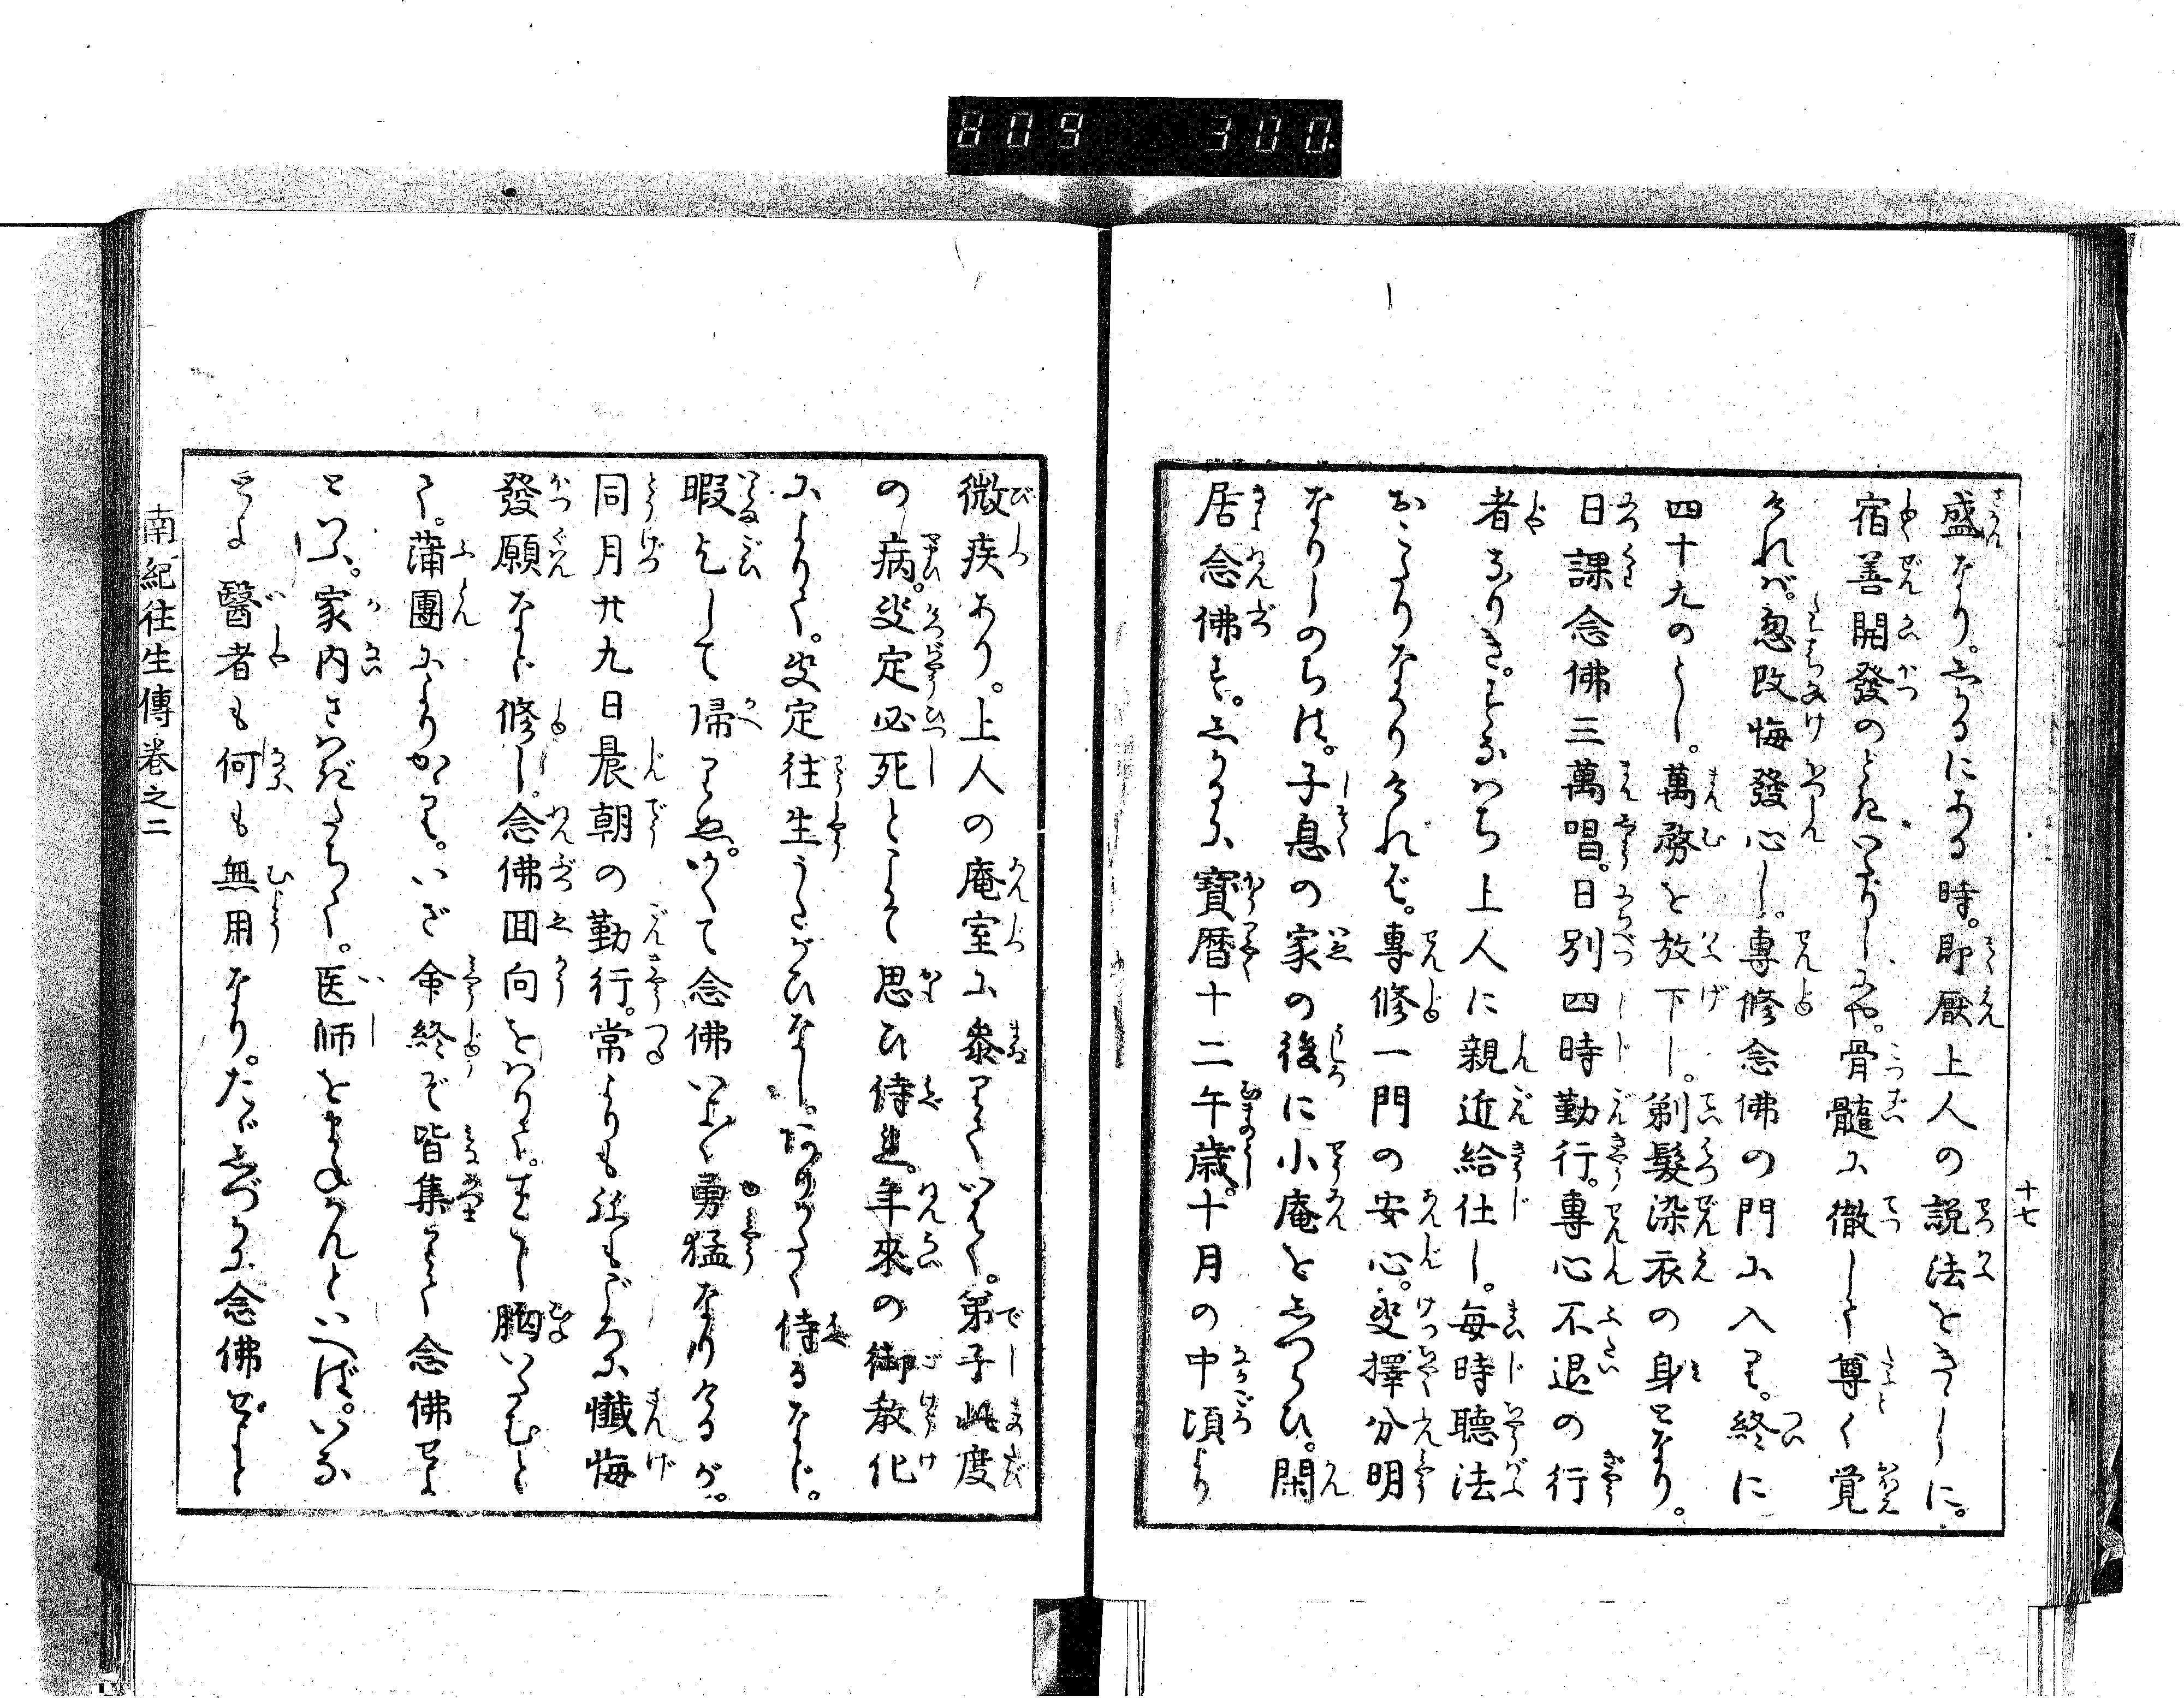 809 300.
十七
盛なり。しかるにある時。即厭上人の説法をきゝしに。
宿善開發のときいたりしにや。骨髓に徹して尊く覚
けれバ。忽改悔發心し。專修念佛の門に入て。終に
四十九のとし。萬務を放下し。剃髮染衣の身となり。
日課念佛三萬唱。日別四時勤行。專心不退の行
者なりき。すなハち上人に親近給仕し。毎時聴法
おこたりなかりけれバ。專修一門の安心。决擇分明
なりしのちは。子息の家の後に小庵をしつらひ。閑
居念佛す。しかるに寳暦十二午歳。十月の中頃より
微疾あり。上人の庵室に參りていはく。弟子此度
の病。决定必死とこそ思ひ侍送。年來の御教化
によりて。决定往生うたがひなし。ありがたく侍るなど。
暇乞して帰りぬ。かくて念佛いよ〳〵勇猛なりけるが。
同月廿九日晨朝の勤行。常よりも殊もごろに懺悔
發願など修し。念佛囬向をハりて。すこし胸いたむと
て。蒲團によりかゝり。いざ命終ぞ皆集りて念佛せよ
といふ。家内さハぎたちて。医師をまねかんといへば。いな
とよ醫者も何も無用なり。たゞしづかに念佛せよと
南紀往生傳巻之二